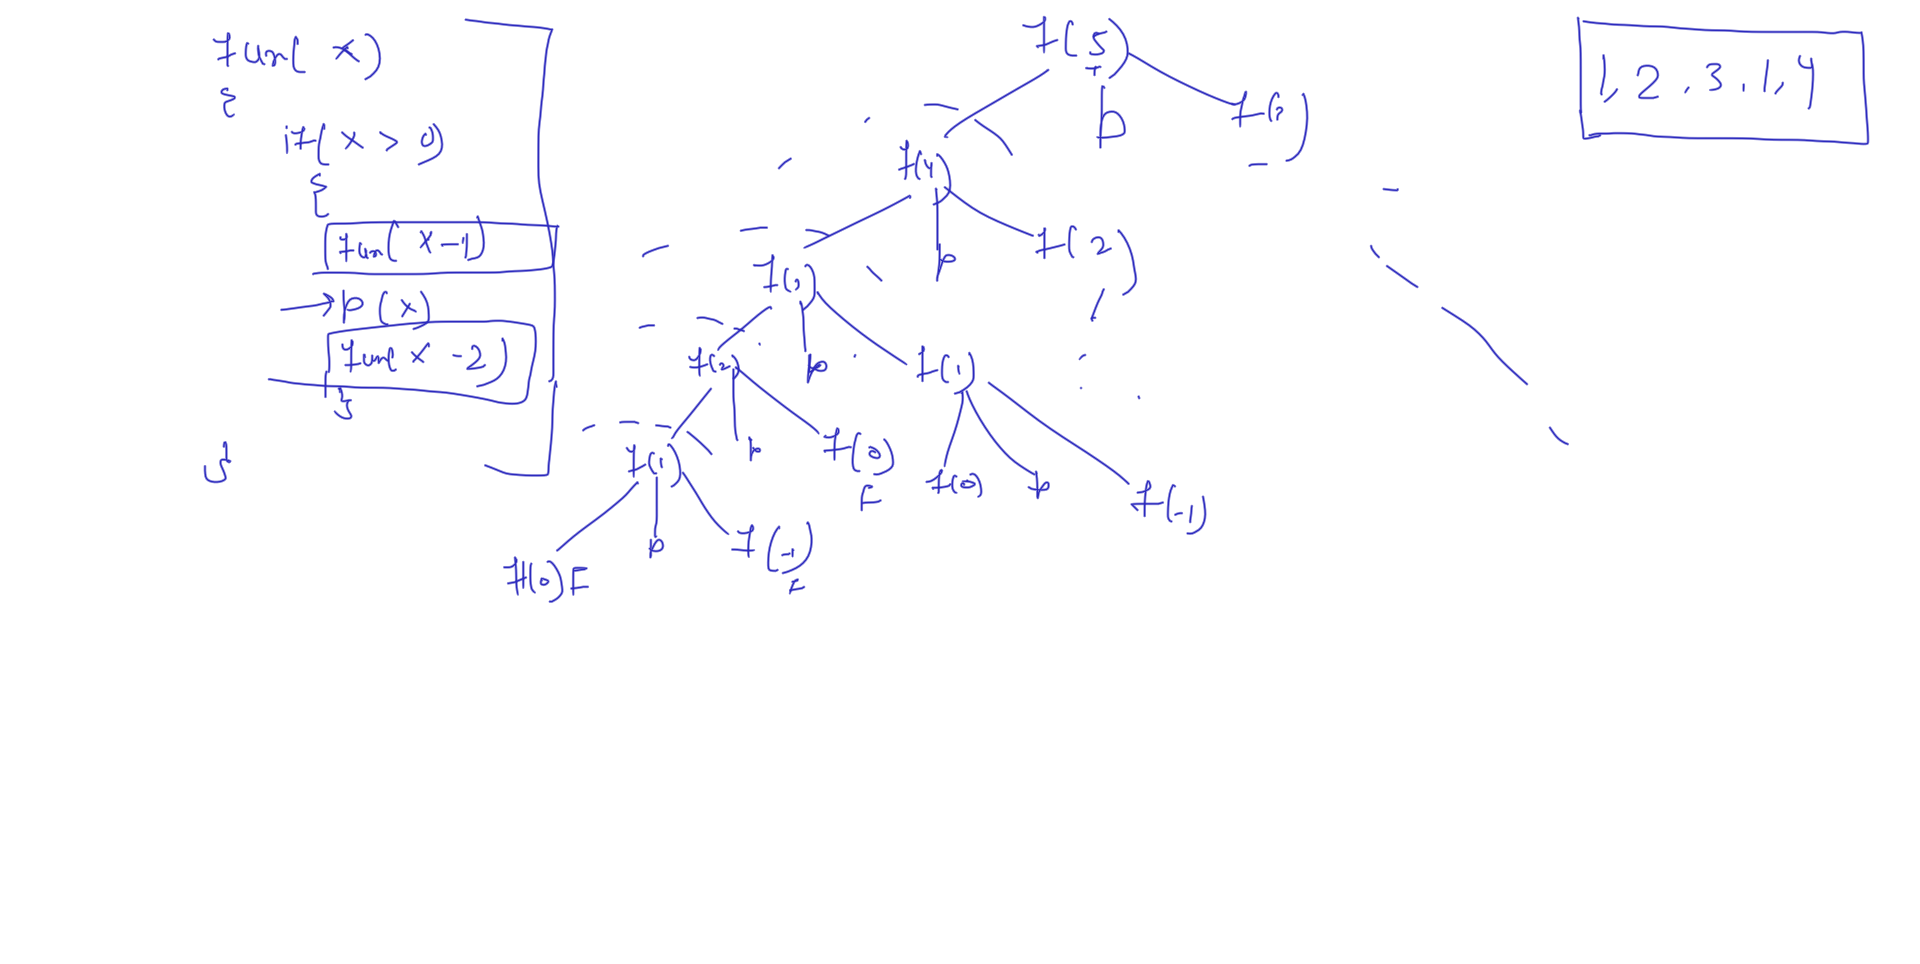 fun( x)
{
if( x > 0)
{
fun( x-1)
→ p (x)
fun( x -2)
}
}
f(5)
T
p
f(3)
f(4)
p
f(2)
f(3)
p
f(1)
f(2)
p
f(0)
F
f(0)
p
f(-1)
f(1)
p
f(-1)
F
f(0) F
1, 2, 3, 1, 4